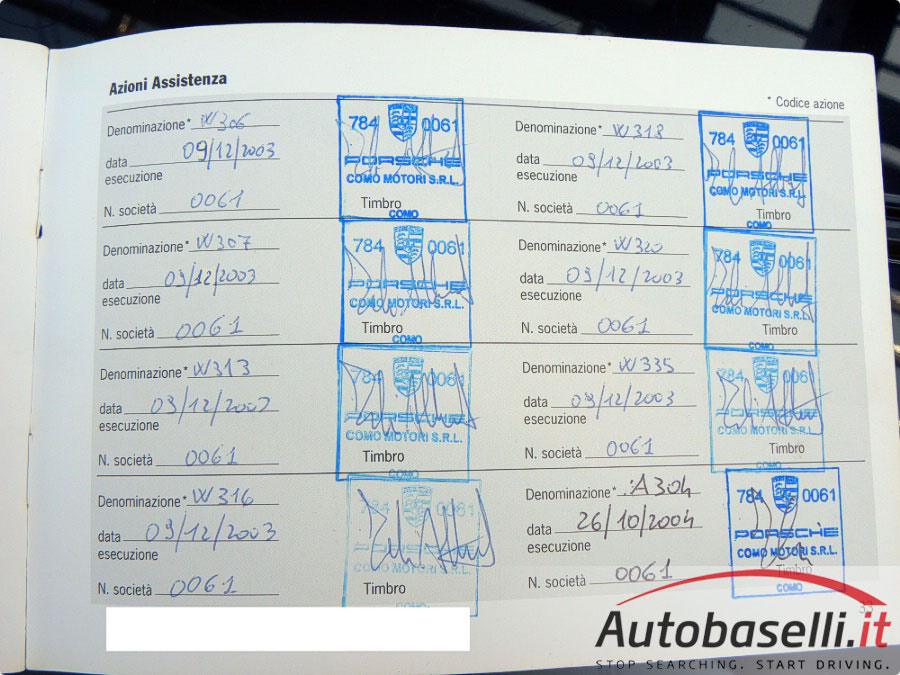 Azioni Assistenza
* Codice azione
Denominazione* W306
data 09/12/2003
esecuzione
N. società 0061
784 0061
PORSCHE
COMO MOTORI S.R.L.
Timbro
COMO
Denominazione* W307
data 09/12/2003
esecuzione
N. società 0061
784 0061
PORSCHE
COMO MOTORI S.R.L.
Timbro
COMO
Denominazione* W313
data 09/12/2003
esecuzione
N. società 0061
784 0061
PORSCHE
COMO MOTORI S.R.L.
Timbro
COMO
Denominazione* W316
data 09/12/2003
esecuzione
N. società 0061
0061
Timbro
Denominazione* W318
data 09/12/2003
esecuzione
N. società 0061
784 0061
PORSCHE
COMO MOTORI S.R.L.
Timbro
COMO
Denominazione* W320
data 09/12/2003
esecuzione
N. società 0061
784 0061
PORSCHE
COMO MOTORI S.R.L.
Timbro
COMO
Denominazione* W335
data 09/12/2003
esecuzione
N. società 0061
784 0061
PORSCHE
COMO MOTORI S.R.L.
Timbro
COMO
Denominazione* A304
data 26/10/2004
esecuzione
N. società 0061
784 0061
PORSCHE
COMO MOTORI S.R.L.
Timbro
COMO
33
Autobaselli.it
STOP SEARCHING. START DRIVING.